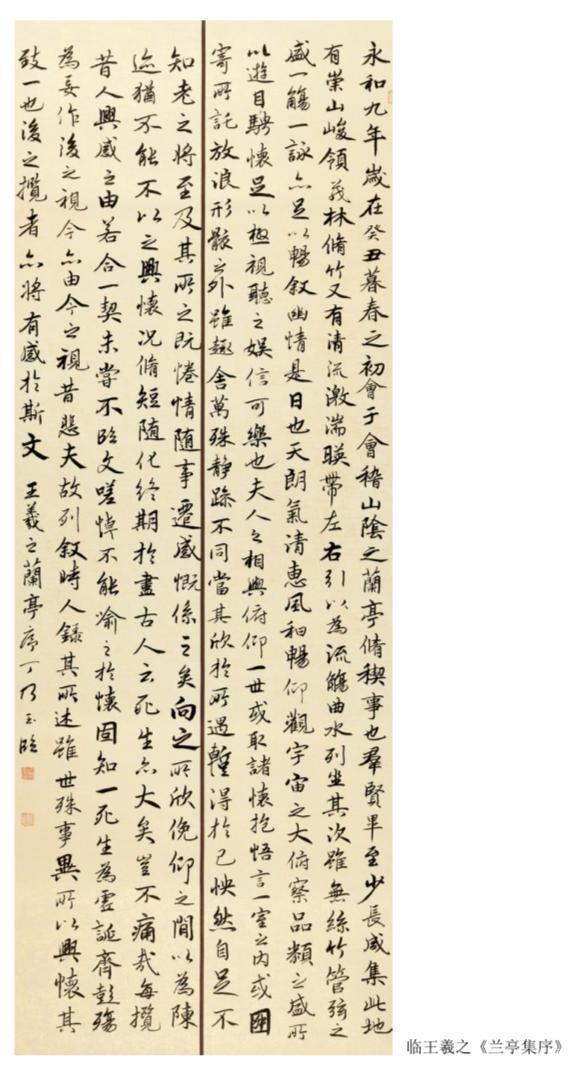 永和九年歲在癸丑暮春之初會于會稽山陰之蘭亭脩稧事也羣賢畢至少長咸集此地
有崇山峻領茂林脩竹又有清流激湍暎帶左右引以為流觴曲水列坐其次雖無絲竹管弦之
盛一觴一詠亦足以暢叙幽情是日也天朗氣清惠風和暢仰觀宇宙之大俯察品類之盛所
以遊目騁懷足以極視聽之娛信可樂也夫人之相與俯仰一世或取諸懷抱悟言一室之内或因
寄所託放浪形骸之外雖趣舍萬殊静躁不同當其欣於所遇暫得於己怏然自足不
知老之將至及其所之既惓情随事遷感慨係之矣向之所欣俛仰之間以為陳
迹猶不能不以之興懷况脩短随化終期於盡古人云死生亦大矣豈不痛哉每攬
昔人興感之由若合一契未嘗不臨文嗟悼不能喻之於懷固知一死生為虛誕齊彭殤
為妄作後之視今亦由今之視昔悲夫故列叙時人録其所述雖世殊事異所以興懷其
致一也後之攬者亦將有感於斯文 王羲之蘭亭序丁乃玉臨
临王羲之《兰亭集序》